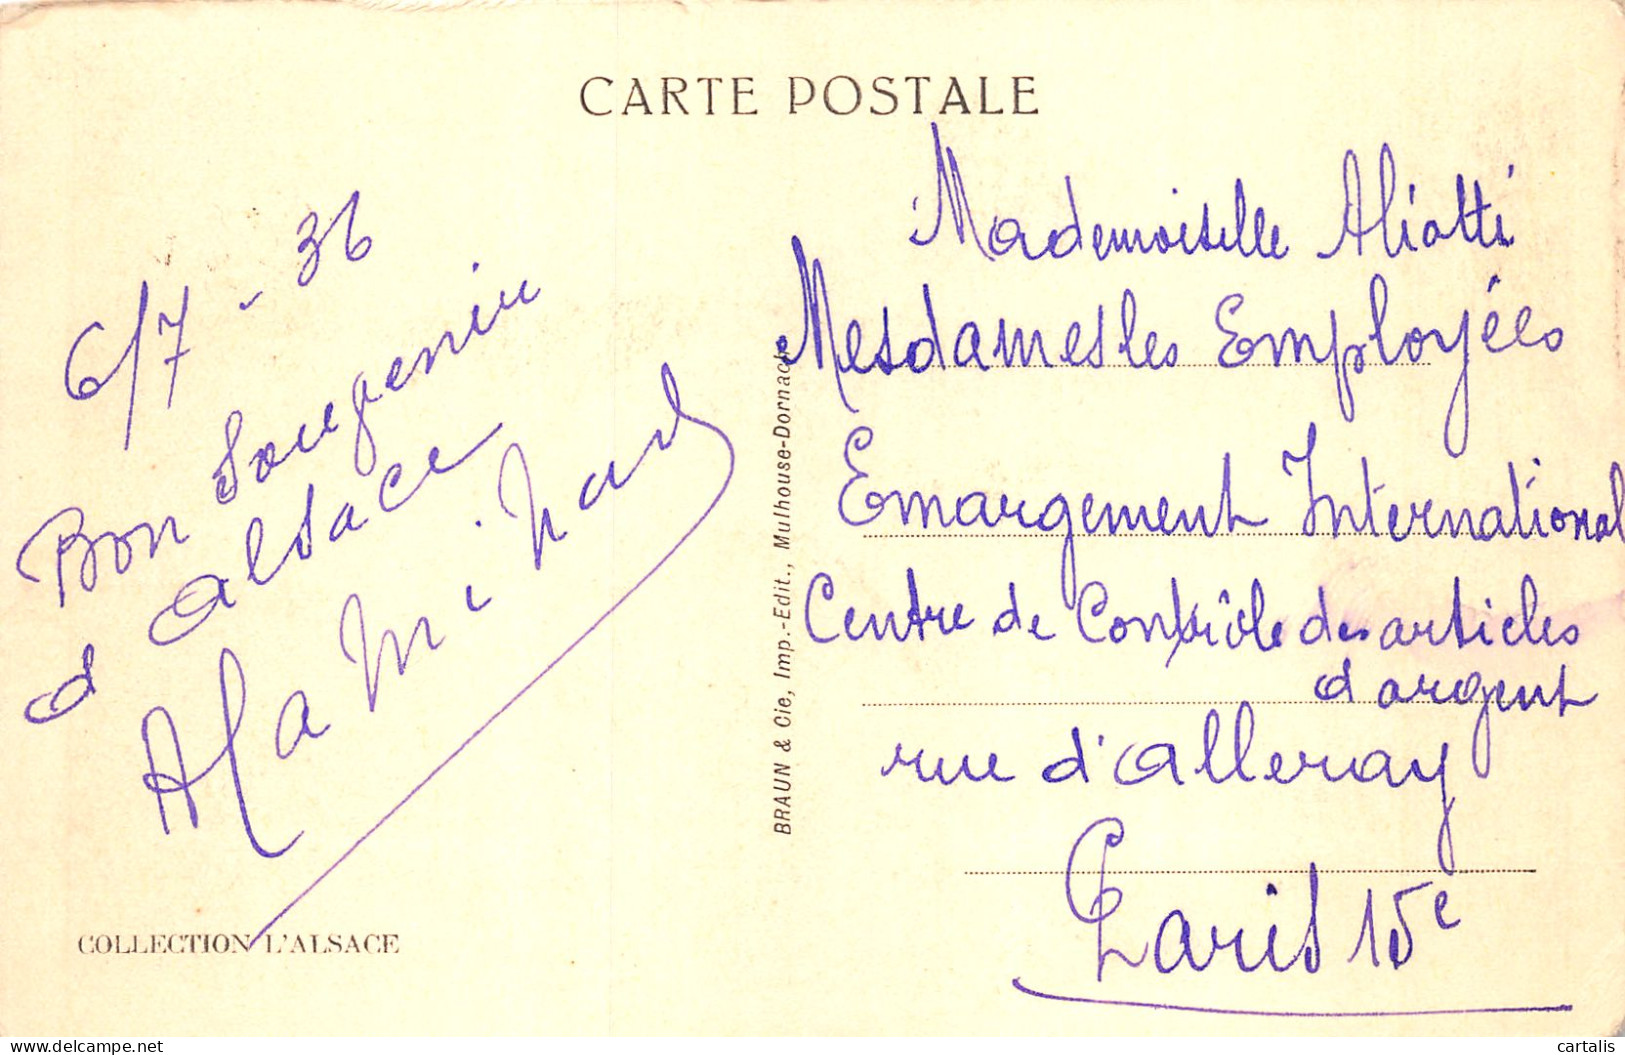 CARTE POSTALE
6/7 - 36
Bon Souvenir
d Alsace
Mademoiselle Aliotti
Mesdames les Employées
Emargement International
Centre de Contrôle des articles
d argent
rue d'Alleray
Paris 15e
BRAUN & Cie, Imp.-Edit., Mulhouse-Dornach
COLLECTION L'ALSACE
cartalis